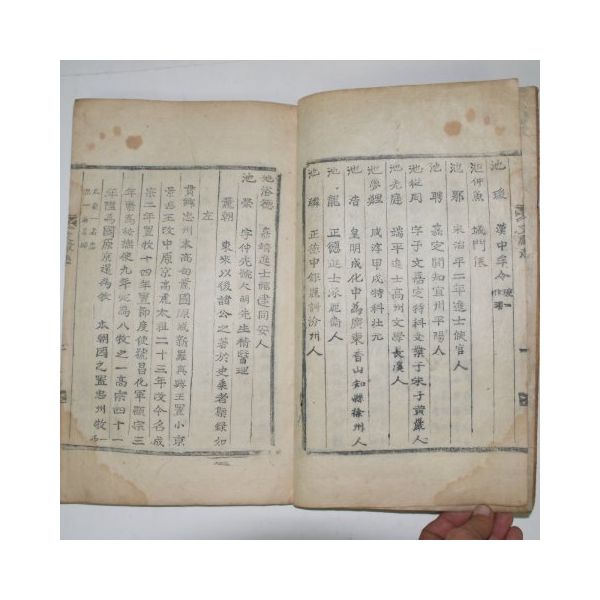 池瑗 漢中牟令
池仲魚 城門侯
池 宋治平二年進士侯官人
池聘 嘉定間知宜州平陽人
池從周 字子文嘉定特科文葉子宋子黃巖人
池光庭 端平進士高州文學長溪人
池夢鯉 咸淳甲戌特科壯元
池浩 皇明成化中爲廣東香山知縣徐州人
池龍 正德進士永寧衛人
池麟 正德中錄汾州人
池浴德 嘉靖進士福建同安人
池榮 字仲光號人明先生精醫理
麗朝 東來以後諸公之著於史乘者類錄如
左
貫鄕忠州本高句麗國原城新羅眞興王置小京
景德王改中原京高麗太祖二十三年改今名成
宗二年置牧十四年置節度使號昌化軍顯宗三
年廢爲按撫使九年定爲八牧之一高宗四十一
年陞爲國原京還爲牧 本朝因之置忠州牧